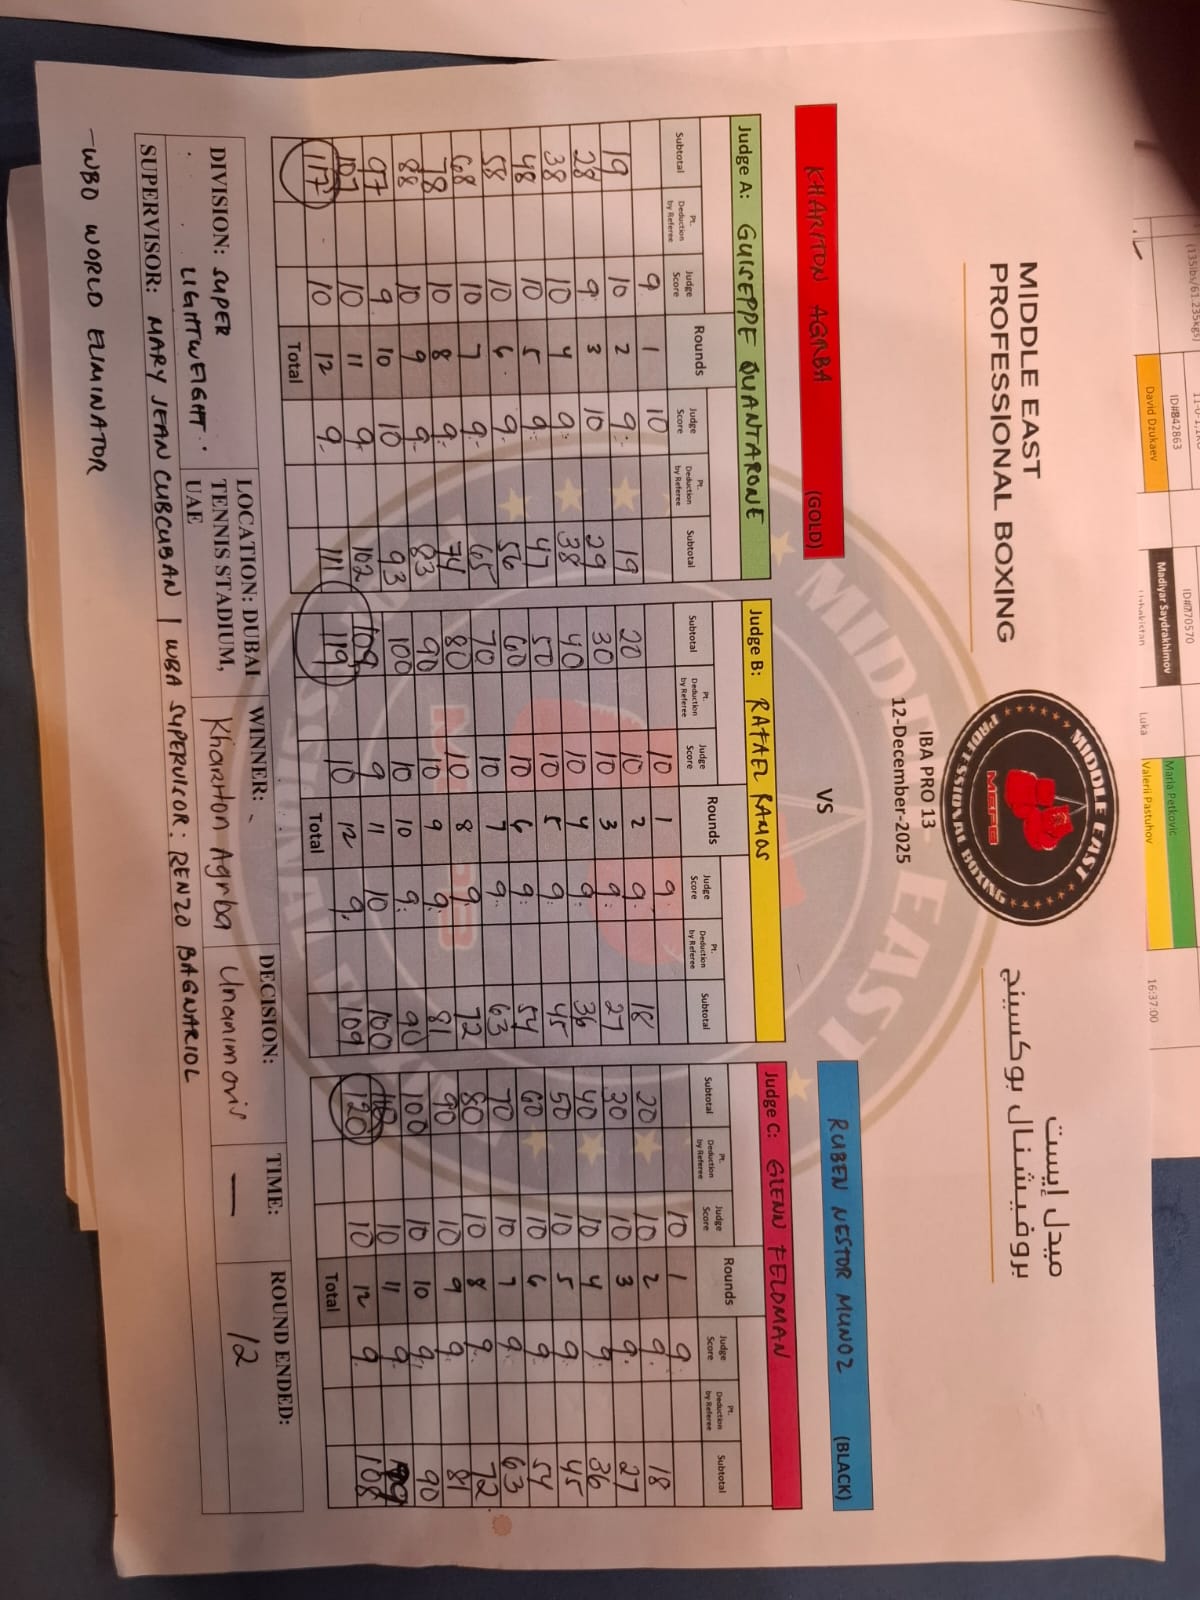 MIDDLE EAST
PROFESSIONAL BOXING
MIDDLE EAST
MEPB
PROFESSIONAL BOXING
ميدل إيست
بروفيشنال بوكسينج
IBA PRO 13
12-December-2025
KHARITON AGRBA (GOLD)
VS
RUBEN NESTOR MUNOZ (BLACK)
Judge A: GUISEPPE QUANTARONE
Judge B: RAFAEL RAMOS
Judge C: GLENN FELDMAN
Subtotal Pt. Deduction by Referee Judge Score Rounds Judge Score Pt. Deduction by Referee Subtotal Subtotal Pt. Deduction by Referee Judge Score Rounds Judge Score Pt. Deduction by Referee Subtotal Subtotal Pt. Deduction by Referee Judge Score Rounds Judge Score Pt. Deduction by Referee Subtotal
9 1 10 10 1 9 10 1 9
19 10 2 9 19 20 10 2 9 18 20 10 2 9 18
28 9 3 10 29 30 10 3 9 27 30 10 3 9 27
38 10 4 9 38 40 10 4 9 36 40 10 4 9 36
48 10 5 9 47 50 10 5 9 45 50 10 5 9 45
58 10 6 9 56 60 10 6 9 54 60 10 6 9 54
68 10 7 9 65 70 10 7 9 63 70 10 7 9 63
78 10 8 9 74 80 10 8 9 72 80 10 8 9 72
88 10 9 9 83 90 10 9 9 81 90 10 9 9 81
97 9 10 10 93 100 10 10 9 90 100 10 10 9 90
107 10 11 9 102 109 9 11 10 100 110 10 11 9
117 10 12 9 111 119 10 12 9 109 120 10 12 9 108
Total Total Total
DIVISION: SUPER LIGHTWEIGHT
LOCATION: DUBAI TENNIS STADIUM, UAE
WINNER: Khariton Agrba
DECISION: Unanimous
TIME: —
ROUND ENDED: 12
SUPERVISOR: MARY JEAN CUBCUBAN | WBA SUPERVISOR: RENZO BAGNARIOL
-WBO WORLD ELIMINATOR
(135lbs/61.235kgs)
David Dzukaev
ID#842863
Madiyar Saydrakhimov
ID#770570
Luka
Maria Petkovic
Valerii Pastuhov
16:37:00